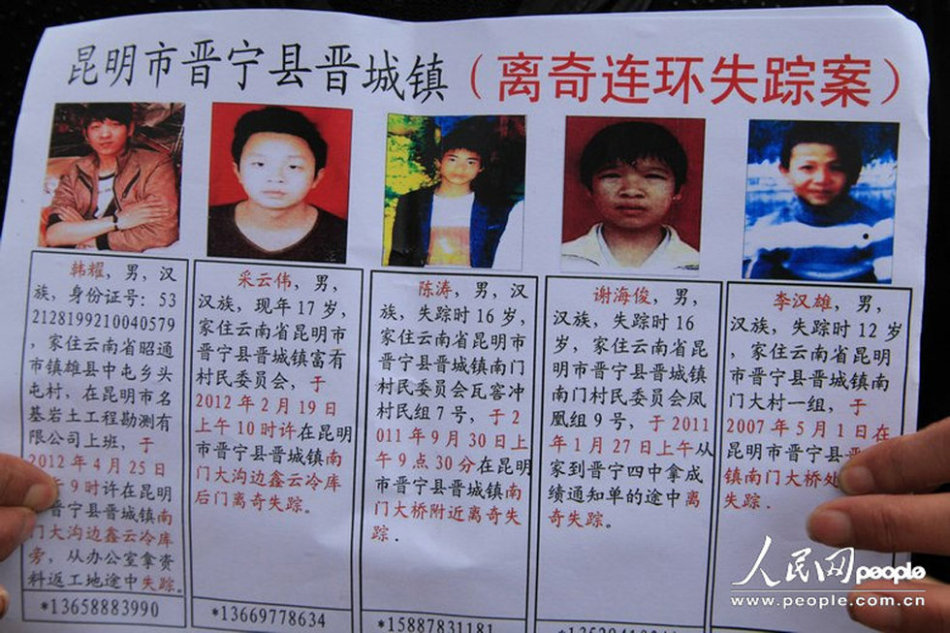 昆明市晋宁县晋城镇（离奇连环失踪案）
韩耀，男，汉
族，身份证号：53
2128199210040579
，家住云南省昭通
市镇雄县中屯乡头
屯村，在昆明市名
基岩土工程勘测有
限公司上班，于
2012年4月25日
午9时许在昆明
晋宁县晋城镇南
门大沟边鑫云冷库
旁，从办公室拿资
料返工地途中失踪。
*13658883990
采云伟，男，
汉族，现年17岁，
家住云南省昆明市
晋宁县晋城镇富有
村民委员会，于
2012年2月19日
上午10时许在昆明
市晋宁县晋城镇南
门大沟边鑫云冷库
后门离奇失踪。
*13669778634
陈涛，男，汉
族，失踪时16岁，
家住云南省昆明市
晋宁县晋城镇南门
村民委员会瓦窑冲
村民组7号，于2
011年9月30日上
午9点30分在昆明
市晋宁县晋城镇南
门大桥附近离奇失
踪．
*15887831181
谢海俊，男，
汉族，失踪时16
岁，家住云南省昆
明市晋宁县晋城镇
南门村民委员会凤
凰组9号，于2011
年1月27日上午从
家到晋宁四中拿成
绩通知单的途中离
奇失踪。
李汉雄，男，
汉族，失踪时12岁
，家住云南省昆明
市晋宁县晋城镇南
门大村一组，于
2007年5月1日在
昆明市晋宁县晋
镇南门大桥处
失踪．
人民网 people
www.people.com.cn